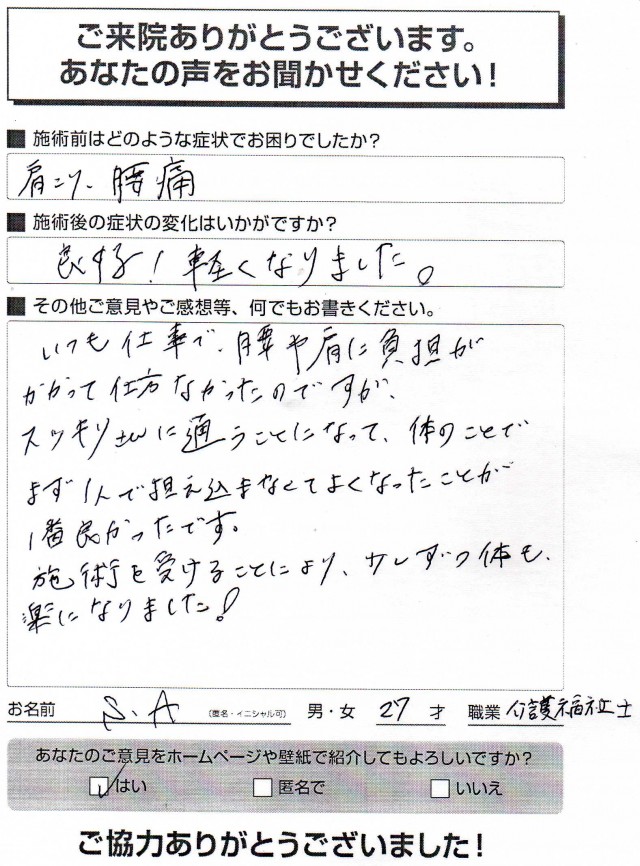 ご来院ありがとうございます。
あなたの声をお聞かせください！
■ 施術前はどのような症状でお困りでしたか？
肩こり、腰痛
■ 施術後の症状の変化はいかがですか？
良好！軽くなりました。
■ その他ご意見やご感想等、何でもお書きください。
いつも仕事で、腰や肩に負担が
かかって仕方なかったのですが、
スッキリさんに通うことになって、体のことで
まず1人で担え込まなくてよくなったことが
1番良かったです。
施術を受けることにより、少しずつ体も、
楽になりました！
お名前 S.A （匿名・イニシャル可） 男・女 27 才 職業 介護福祉士
あなたのご意見をホームページや壁紙で紹介してもよろしいですか？
はい 匿名で いいえ
ご協力ありがとうございました！